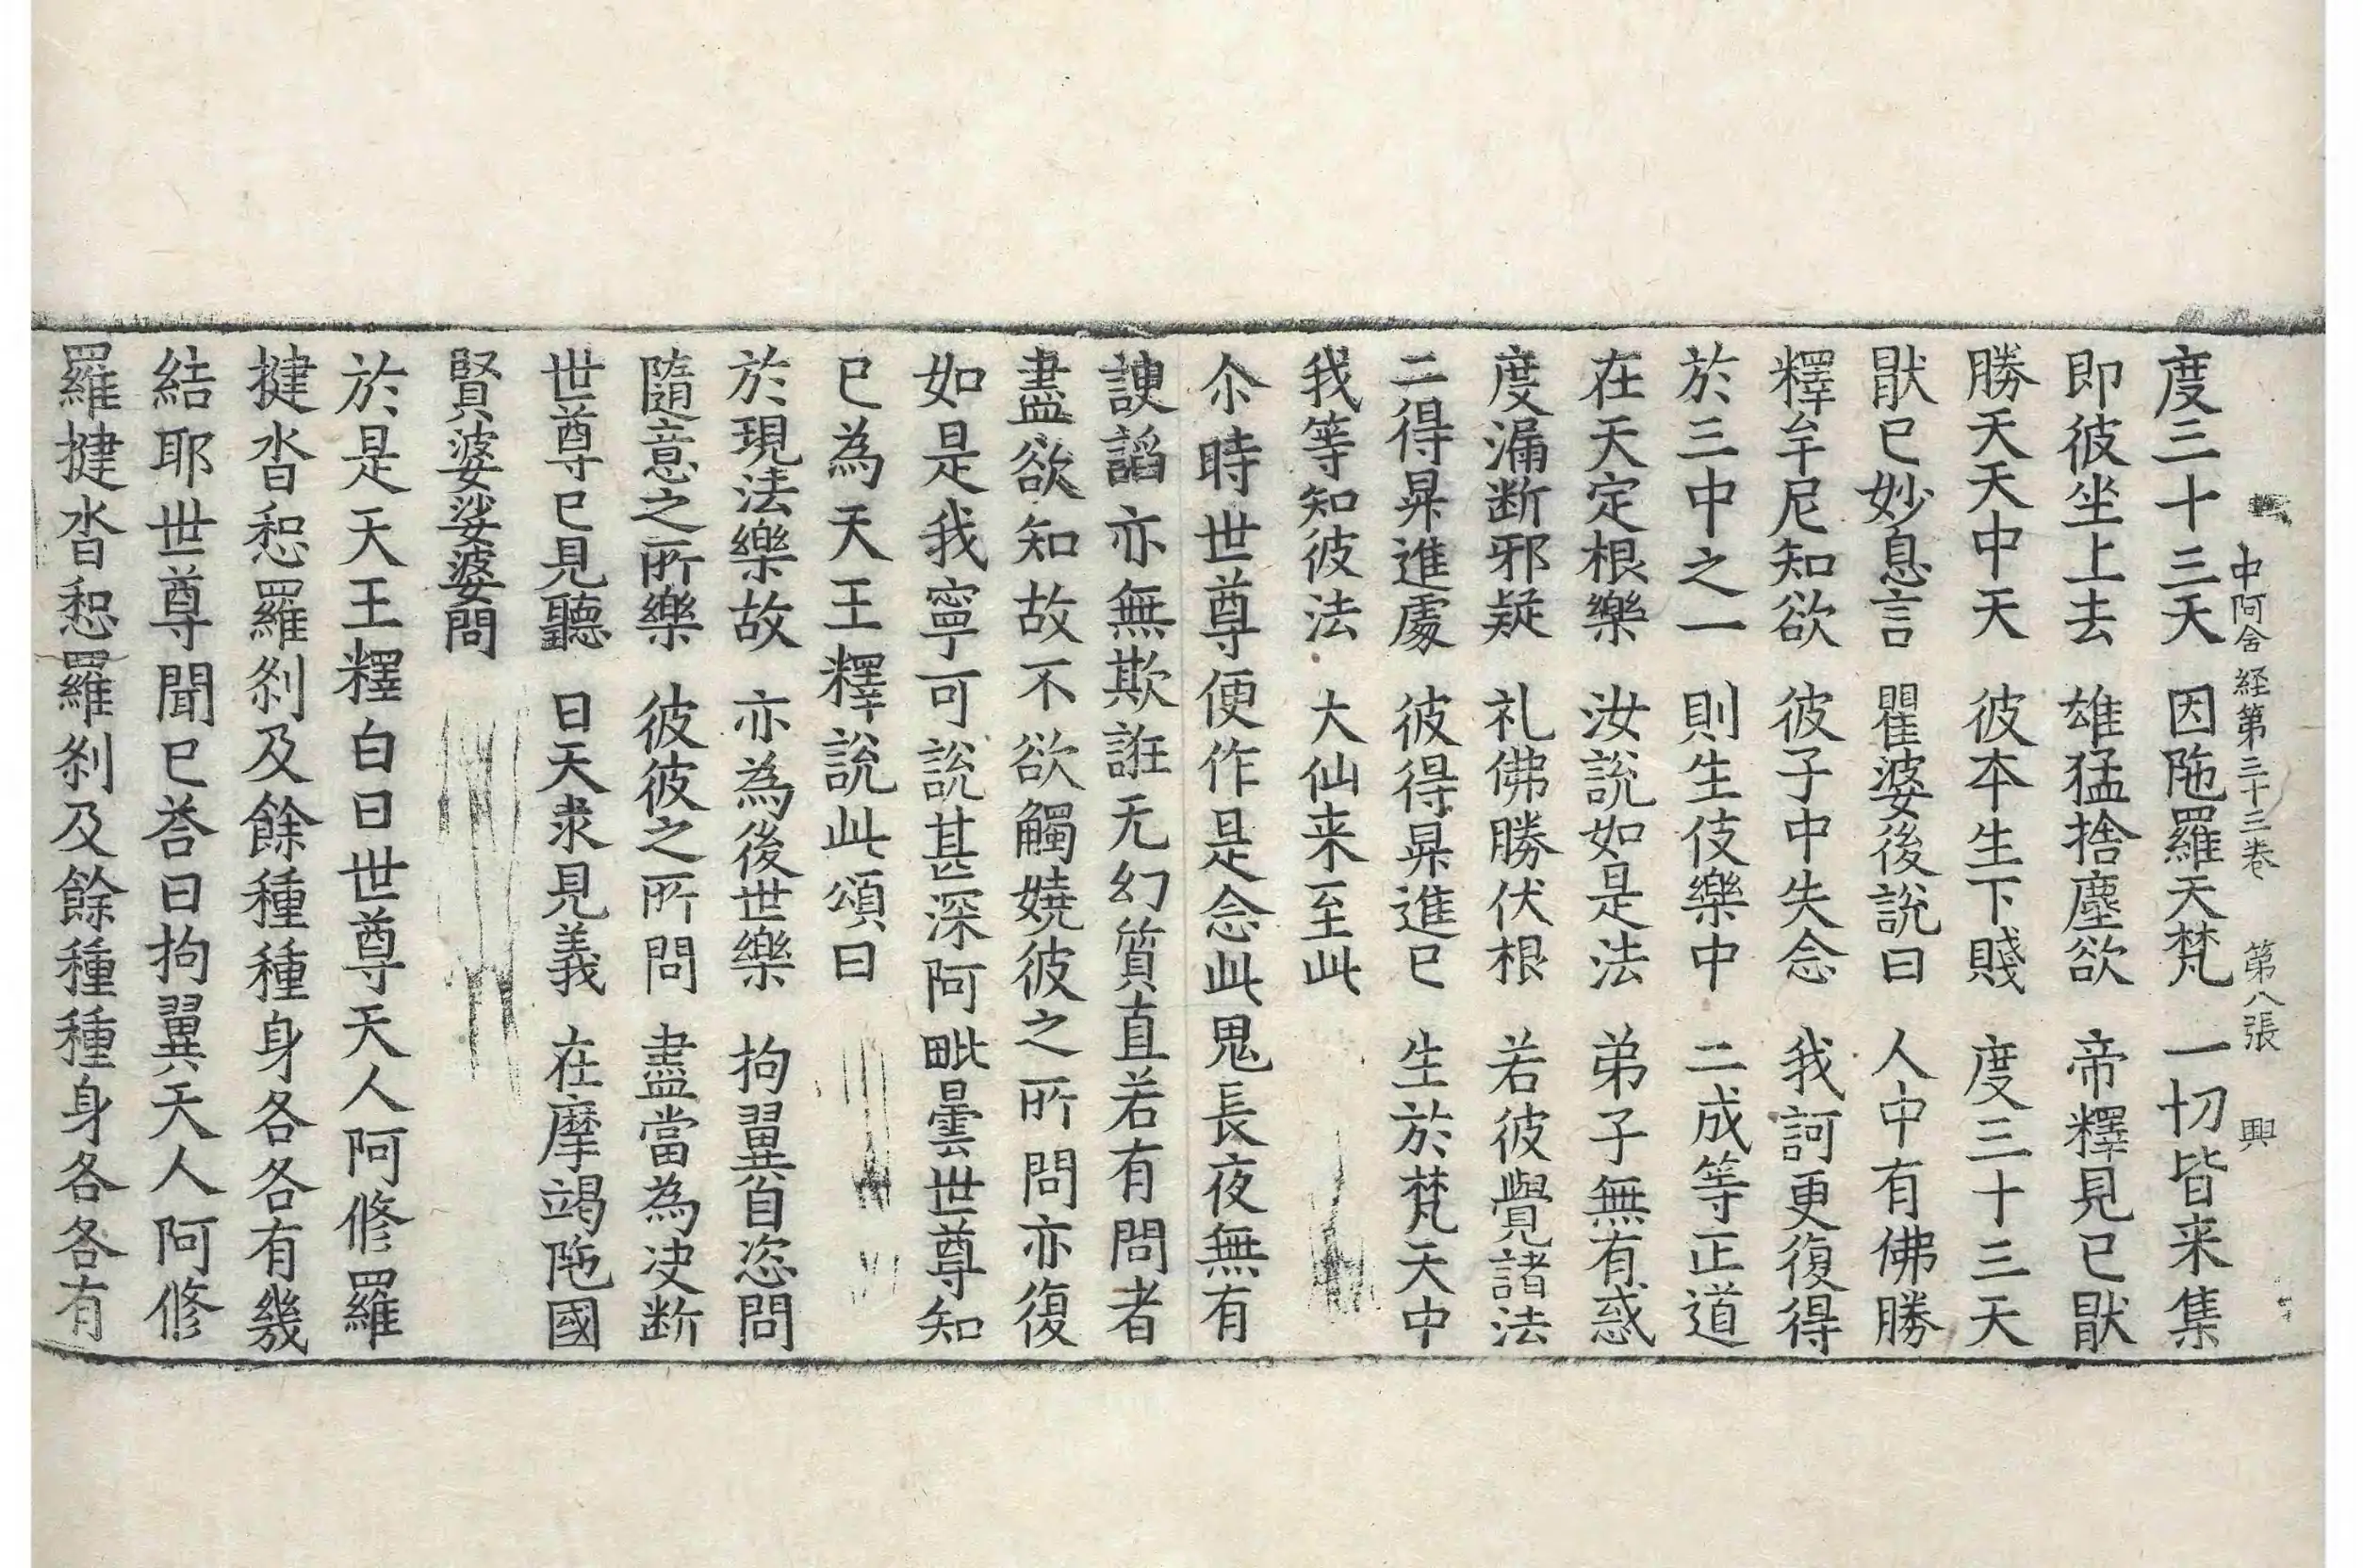 中阿含経第三十三卷　第八張　興
度三十三天　因陁羅天梵　一切皆来集
即彼坐上去　雄猛捨塵欲　帝釋見已猒
勝天天中天　彼本生下賤　度三十三天
猒已妙息言　瞿婆後說曰　人中有佛勝
釋牟尼知欲　彼子中失念　我訶更復得
於三中之一　則生伎樂中　二成等正道
在天定根樂　汝說如是法　弟子無有惑
度漏断邪疑　礼佛勝伏根　若彼覺諸法
二得昇進處　彼得昇進已　生於梵天中
我等知彼法　大仙来至此
尒時世尊便作是念此鬼長夜無有
諛諂亦無欺誑无幻質直若有問者
盡欲知故不欲觸嬈彼之所問亦復
如是我寧可說甚深阿毗曇世尊知
已為天王釋說此頌曰
於現法樂故　亦為後世樂　拘翼自恣問
隨意之所樂　彼彼之所問　盡當為决断
世尊已見聽　日天求見義　在摩竭陁國
賢婆娑婆問
於是天王釋白曰世尊天人阿修羅
揵沓惒羅剎及餘種種身各各有幾
結耶世尊聞已荅曰拘翼天人阿修
羅揵沓惒羅剎及餘種種身各各有